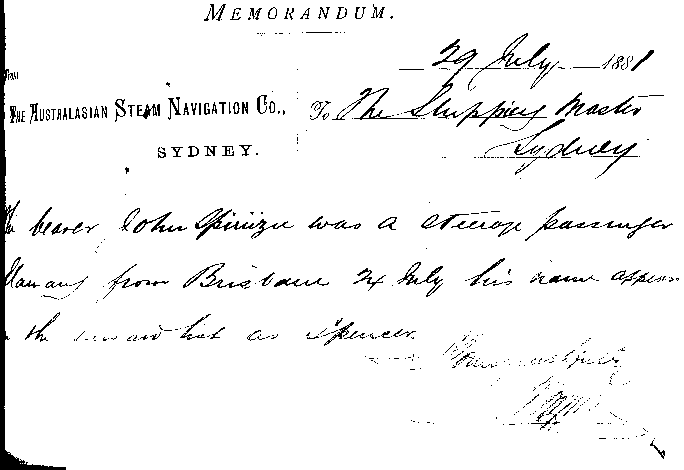 MEMORANDUM.
29 July 1881
From
THE AUSTRALASIAN STEAM NAVIGATION CO.,
To The Shipping Master
SYDNEY.
Sydney
bearer John was a steerage passenger
from Brisbane 24 July his name
the list as Spencer.